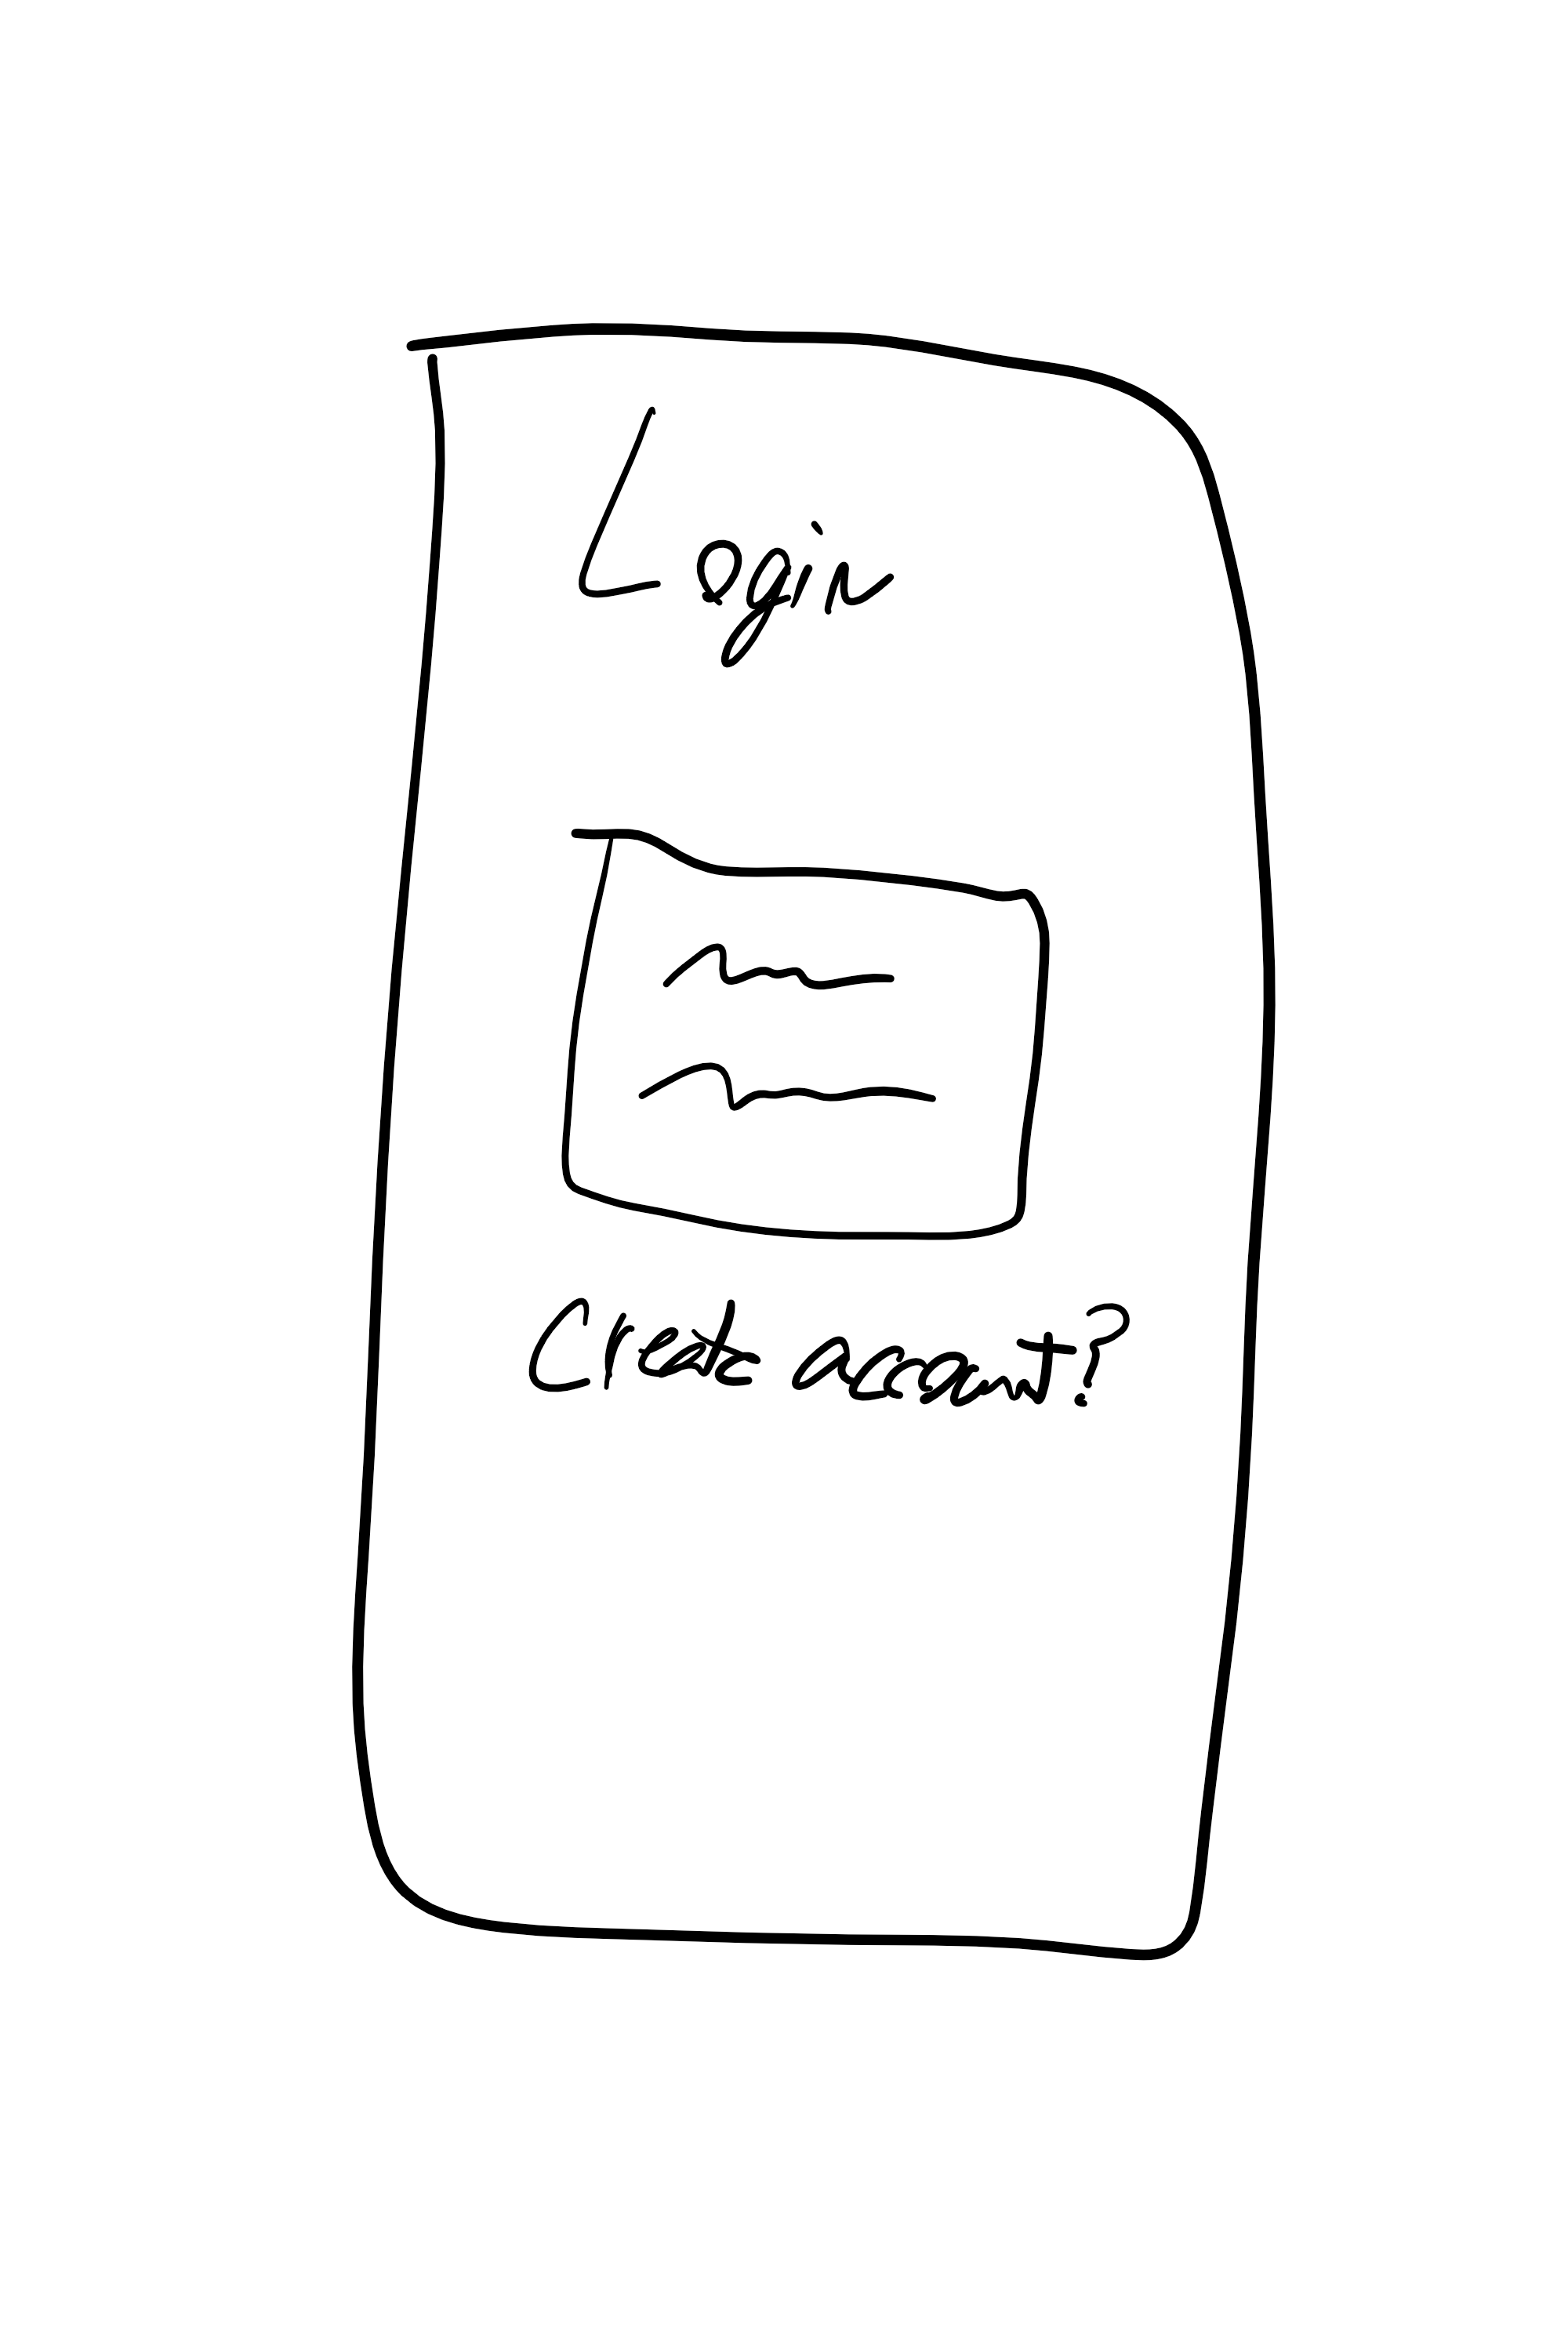 Login
Create account?